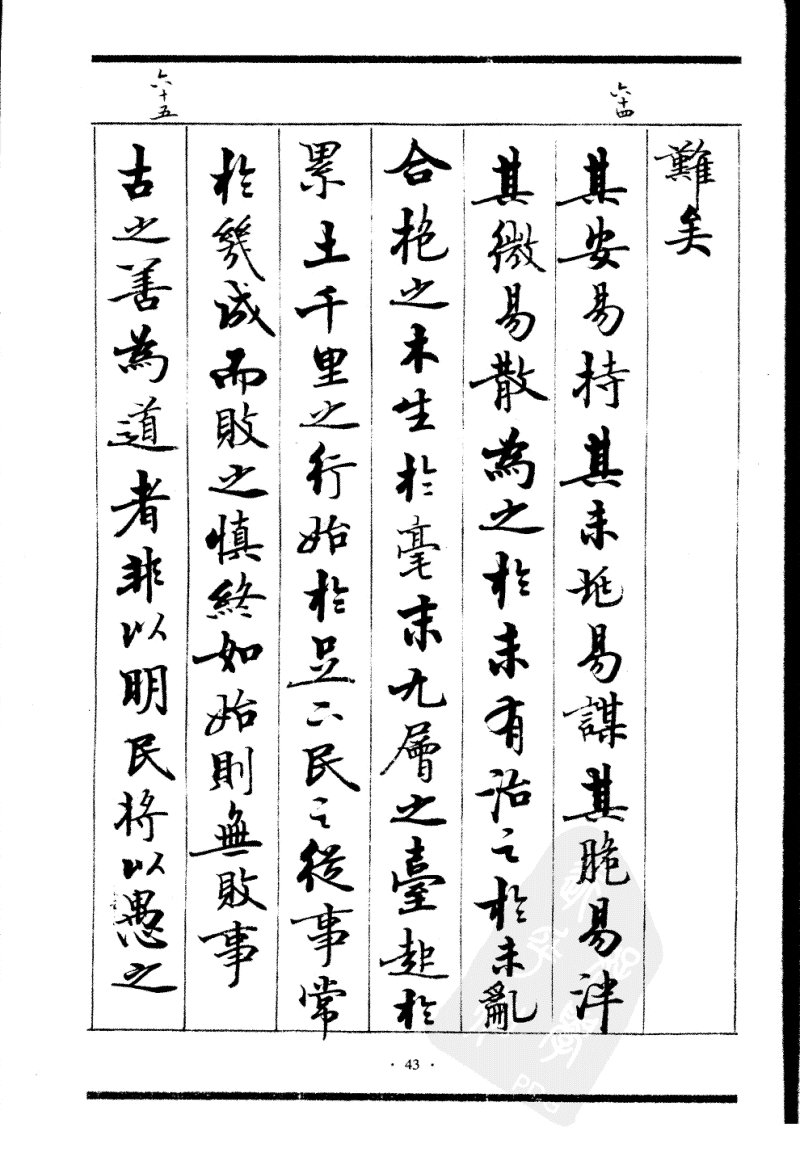 六十四
六十五
難矣
其安易持其未兆易謀其脆易泮
其微易散為之於未有治之於未亂
合抱之木生於毫末九層之臺起於
累土千里之行始於足下民之從事常
於幾成而敗之慎終如始則無敗事
古之善為道者非以明民將以愚之
· 43 ·